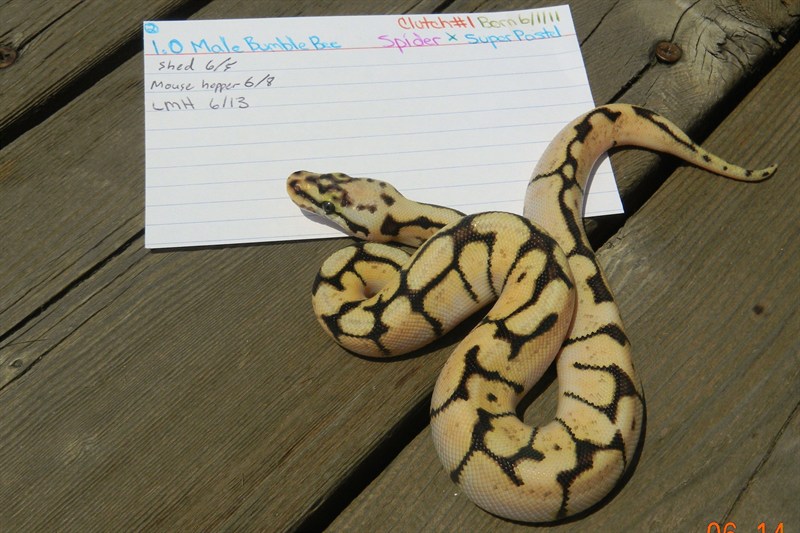 Clutch#1 Born 6/1/11
1.0 Male Bumble Bee Spider x Super Pastel
shed 6/5
Mouse hopper 6/8
LMH 6/13
06 14